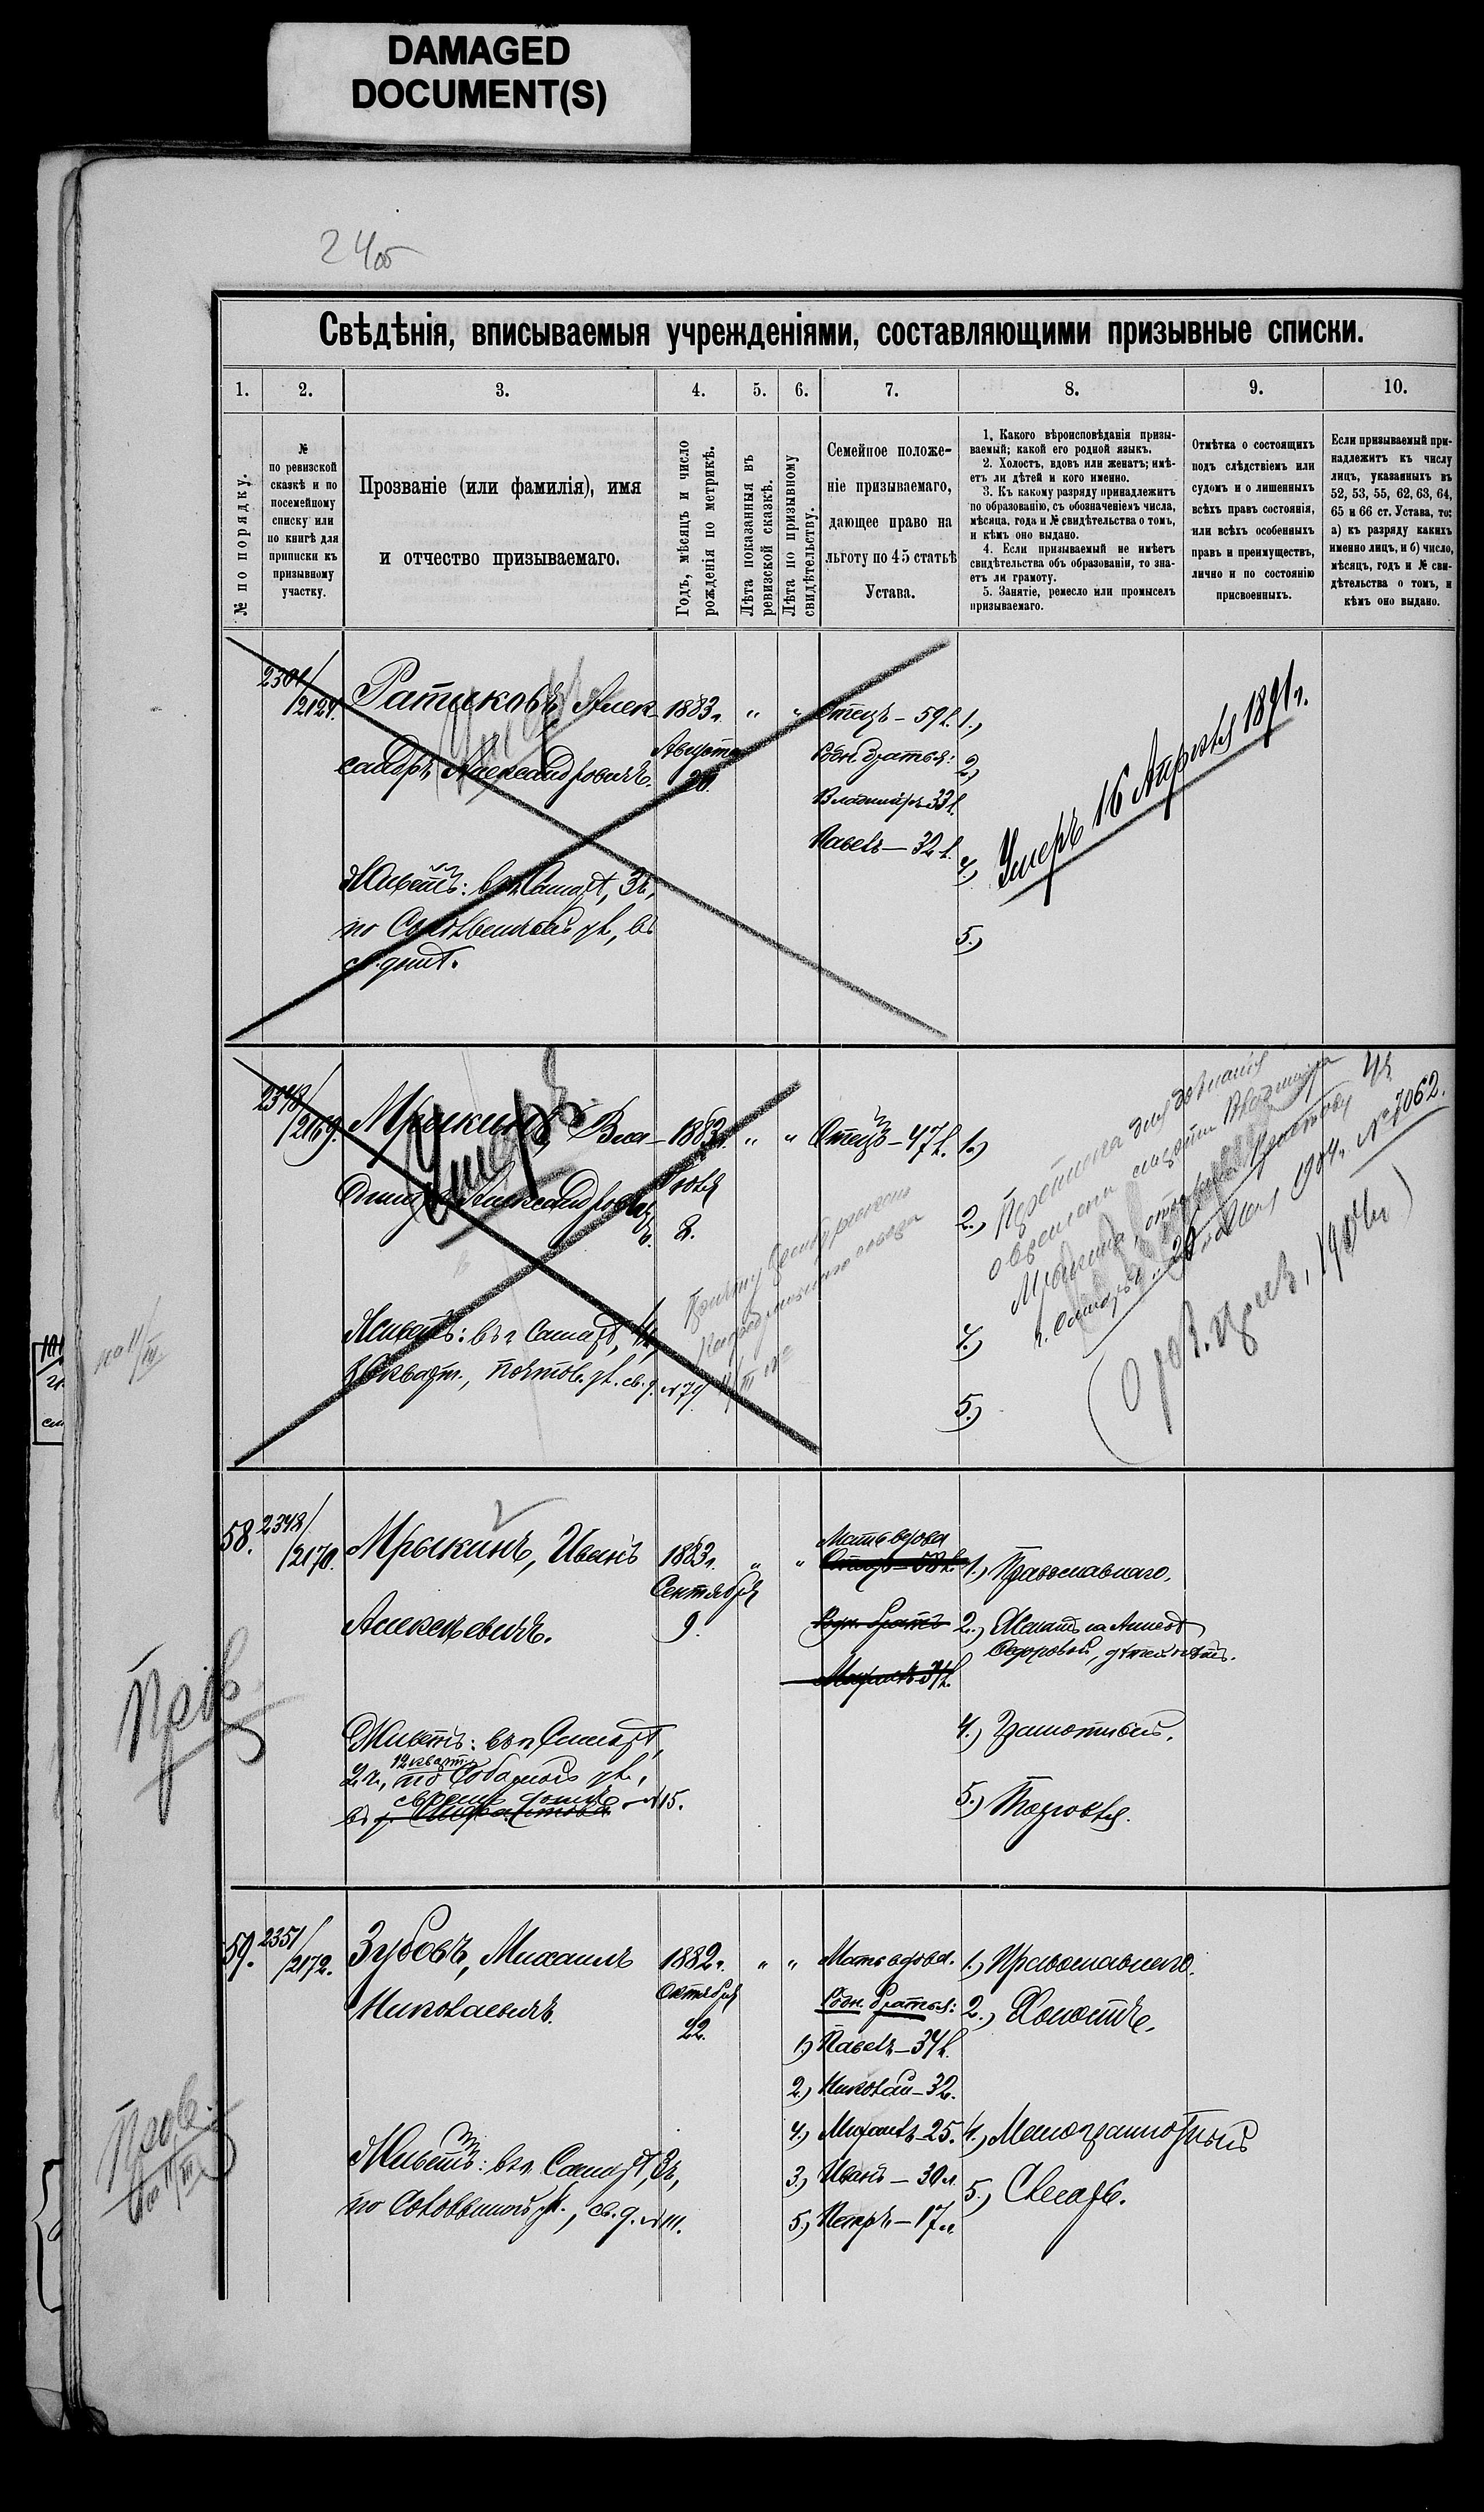 DAMAGED
DOCUMENT(S)
24об
Свѣдѣнія, вписываемыя учрежденіями, составляющими призывные списки.
1. 2. 3. 4. 5. 6. 7. 8. 9. 10.
№ по порядку.
№
по ревизской
сказкѣ и по
посемейному
списку или
по книгѣ для
приписки къ
призывному
участку.
Прозваніе (или фамилія), имя
и отчество призываемаго.
Годъ, мѣсяцъ и число
рожденія по метрикѣ.
Лѣта показанныя въ
ревизской сказкѣ.
Лѣта по призывному
свидѣтельству.
Семейное положе-
ніе призываемаго,
дающее право на
льготу по 45 статьѣ
Устава.
1. Какого вѣроисповѣданія призы-
ваемый; какой его родной языкъ.
2. Холостъ, вдовъ или женатъ; имѣ-
етъ ли дѣтей и кого именно.
3. Къ какому разряду принадлежитъ
по образованію, съ обозначеніемъ числа,
мѣсяца, года и № свидѣтельства о томъ,
и кѣмъ оно выдано.
4. Если призываемый не имѣетъ
свидѣтельства объ образованіи, то зна-
етъ ли грамоту.
5. Занятіе, ремесло или промыселъ
призываемаго.
Отмѣтка о состоящихъ
подъ слѣдствіемъ или
судомъ и о лишенныхъ
всѣхъ правъ состоянія,
или всѣхъ особенныхъ
правъ и преимуществъ,
лично и по состоянію
присвоенныхъ.
Если призываемый при-
надлежитъ къ числу
лицъ, указанныхъ въ
52, 53, 55, 62, 63, 64,
65 и 66 ст. Устава, то:
а) къ разряду какихъ
именно лицъ, и б) число,
мѣсяцъ, годъ и № сви-
дѣтельства о томъ, и
кѣмъ оно выдано.
2301/
/2124.
Ратаковъ, Алек-
сандръ Александровичъ.
Живетъ: въ г. Самарѣ, 3 ч.,
по Соловьиной ул., въ
св. домѣ.
1883 г.
Августа
20.
" "
Отецъ – 59 л.
Родн. братья:
Владиміръ 33 л.
Павелъ – 32 л.
1.)
2.)
4.)
5.)
Умеръ 16 Апрѣля 1891 г.
2348/
/2169.
Мрыкинъ, Вла-
диміръ Александровичъ.
Умеръ.
Живетъ: въ г. Самарѣ, 4 ч.,
кварт., Почтов. ул. св. д. № 79.
1883 г.
Іюля
8.
" "
Отецъ – 47 л.
1.)
2.)
4.)
5.)
Мрыкина
1904 г. № 7062.
по 11/III
58.
2348/
/2170.
Мрыкинъ, Иванъ
Алексѣевичъ.
Живетъ: въ г. Самарѣ,
2 ч., 12 кварт.
своемъ домѣ № 15.
1883 г.
Сентября
9.
" "
Мать вдова
Отецъ – 58 л.
Родн. братъ
1.) Православнаго.
2.) Женатъ на Аннѣ
дѣтей нѣтъ.
4.) Грамотный.
5.) Торговля.
Пров.
59.
2351/
/2172.
Зубовъ, Михаилъ
Николаевичъ.
Живетъ: въ г. Самарѣ, 3 ч.,
по Соловьиной ул., св. д. № 111.
1882 г.
Октября
22.
" "
Мать вдова.
Родн. братья:
1) Павелъ – 34 л.
2.) Николай – 32.
4.) Михаилъ – 25.
3.) Иванъ – 30 л.
5.) Петръ – 17 л.
1.) Православнаго.
2.) Холостъ.
4.) Малограмотный
5.) Слесарь.
Пров.
по 11/III